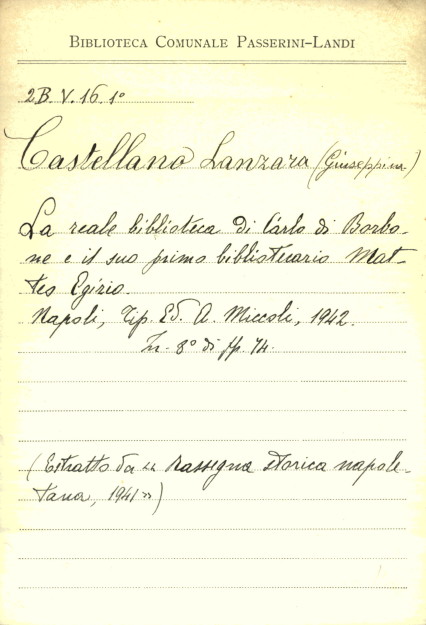 BIBLIOTECA COMUNALE PASSERINI-LANDI
2B. V. 16. 1°
Castellano Lanzara (Giuseppina)
La reale biblioteca di Carlo di Borbo-
ne e il suo primo bibliotecario Mat-
teo Egizio.
Napoli, Tip. Ed. A. Miccoli, 1942.
In-8° di pp. 74.
(Estratto da "Rassegna storica napole-
tana, 1941")